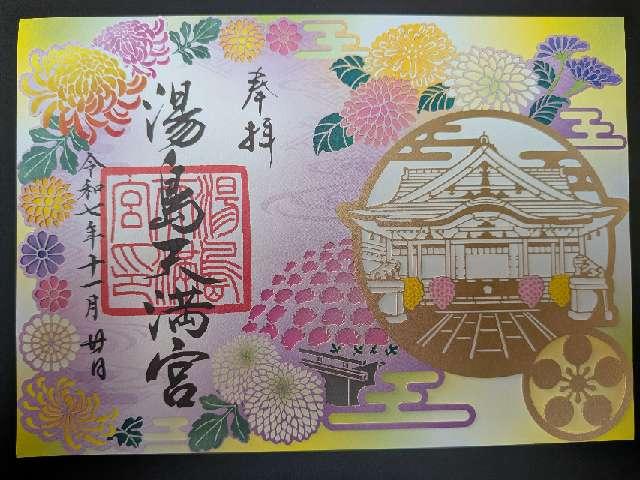 奉拝
湯島天満宮
令和七年十一月廿日